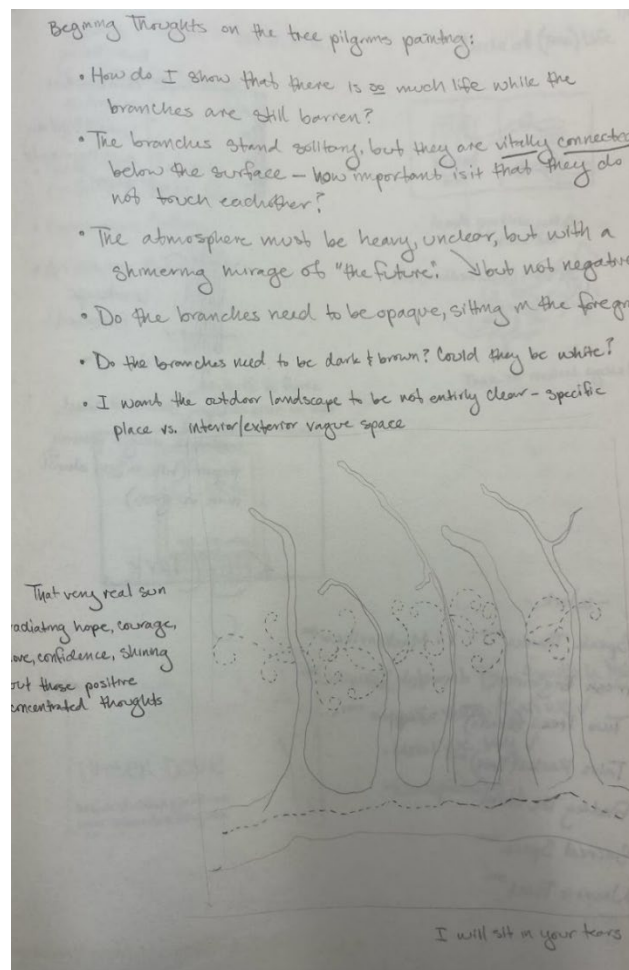 Beginning Thoughts on the tree pilgrims painting:
• How do I show that there is so much life while the
branches are still barren?
• The branches stand solitary, but they are vitally connected
below the surface – how important is it that they do
not touch eachother?
• The atmosphere must be heavy, unclear, but with a
shimering mirage of "the future". but not negative
• Do the branches need to be opaque, sitting in the foregr
• Do the branches need to be dark & brown? Could they be white?
• I want the outdoor landscape to be not entirly clear – specific
place vs. interior/exterior vague space
That very real sun
adiating hope, courage,
ove, confidence, shining
out those positive
oncentrated thoughts
I will sit in your tears